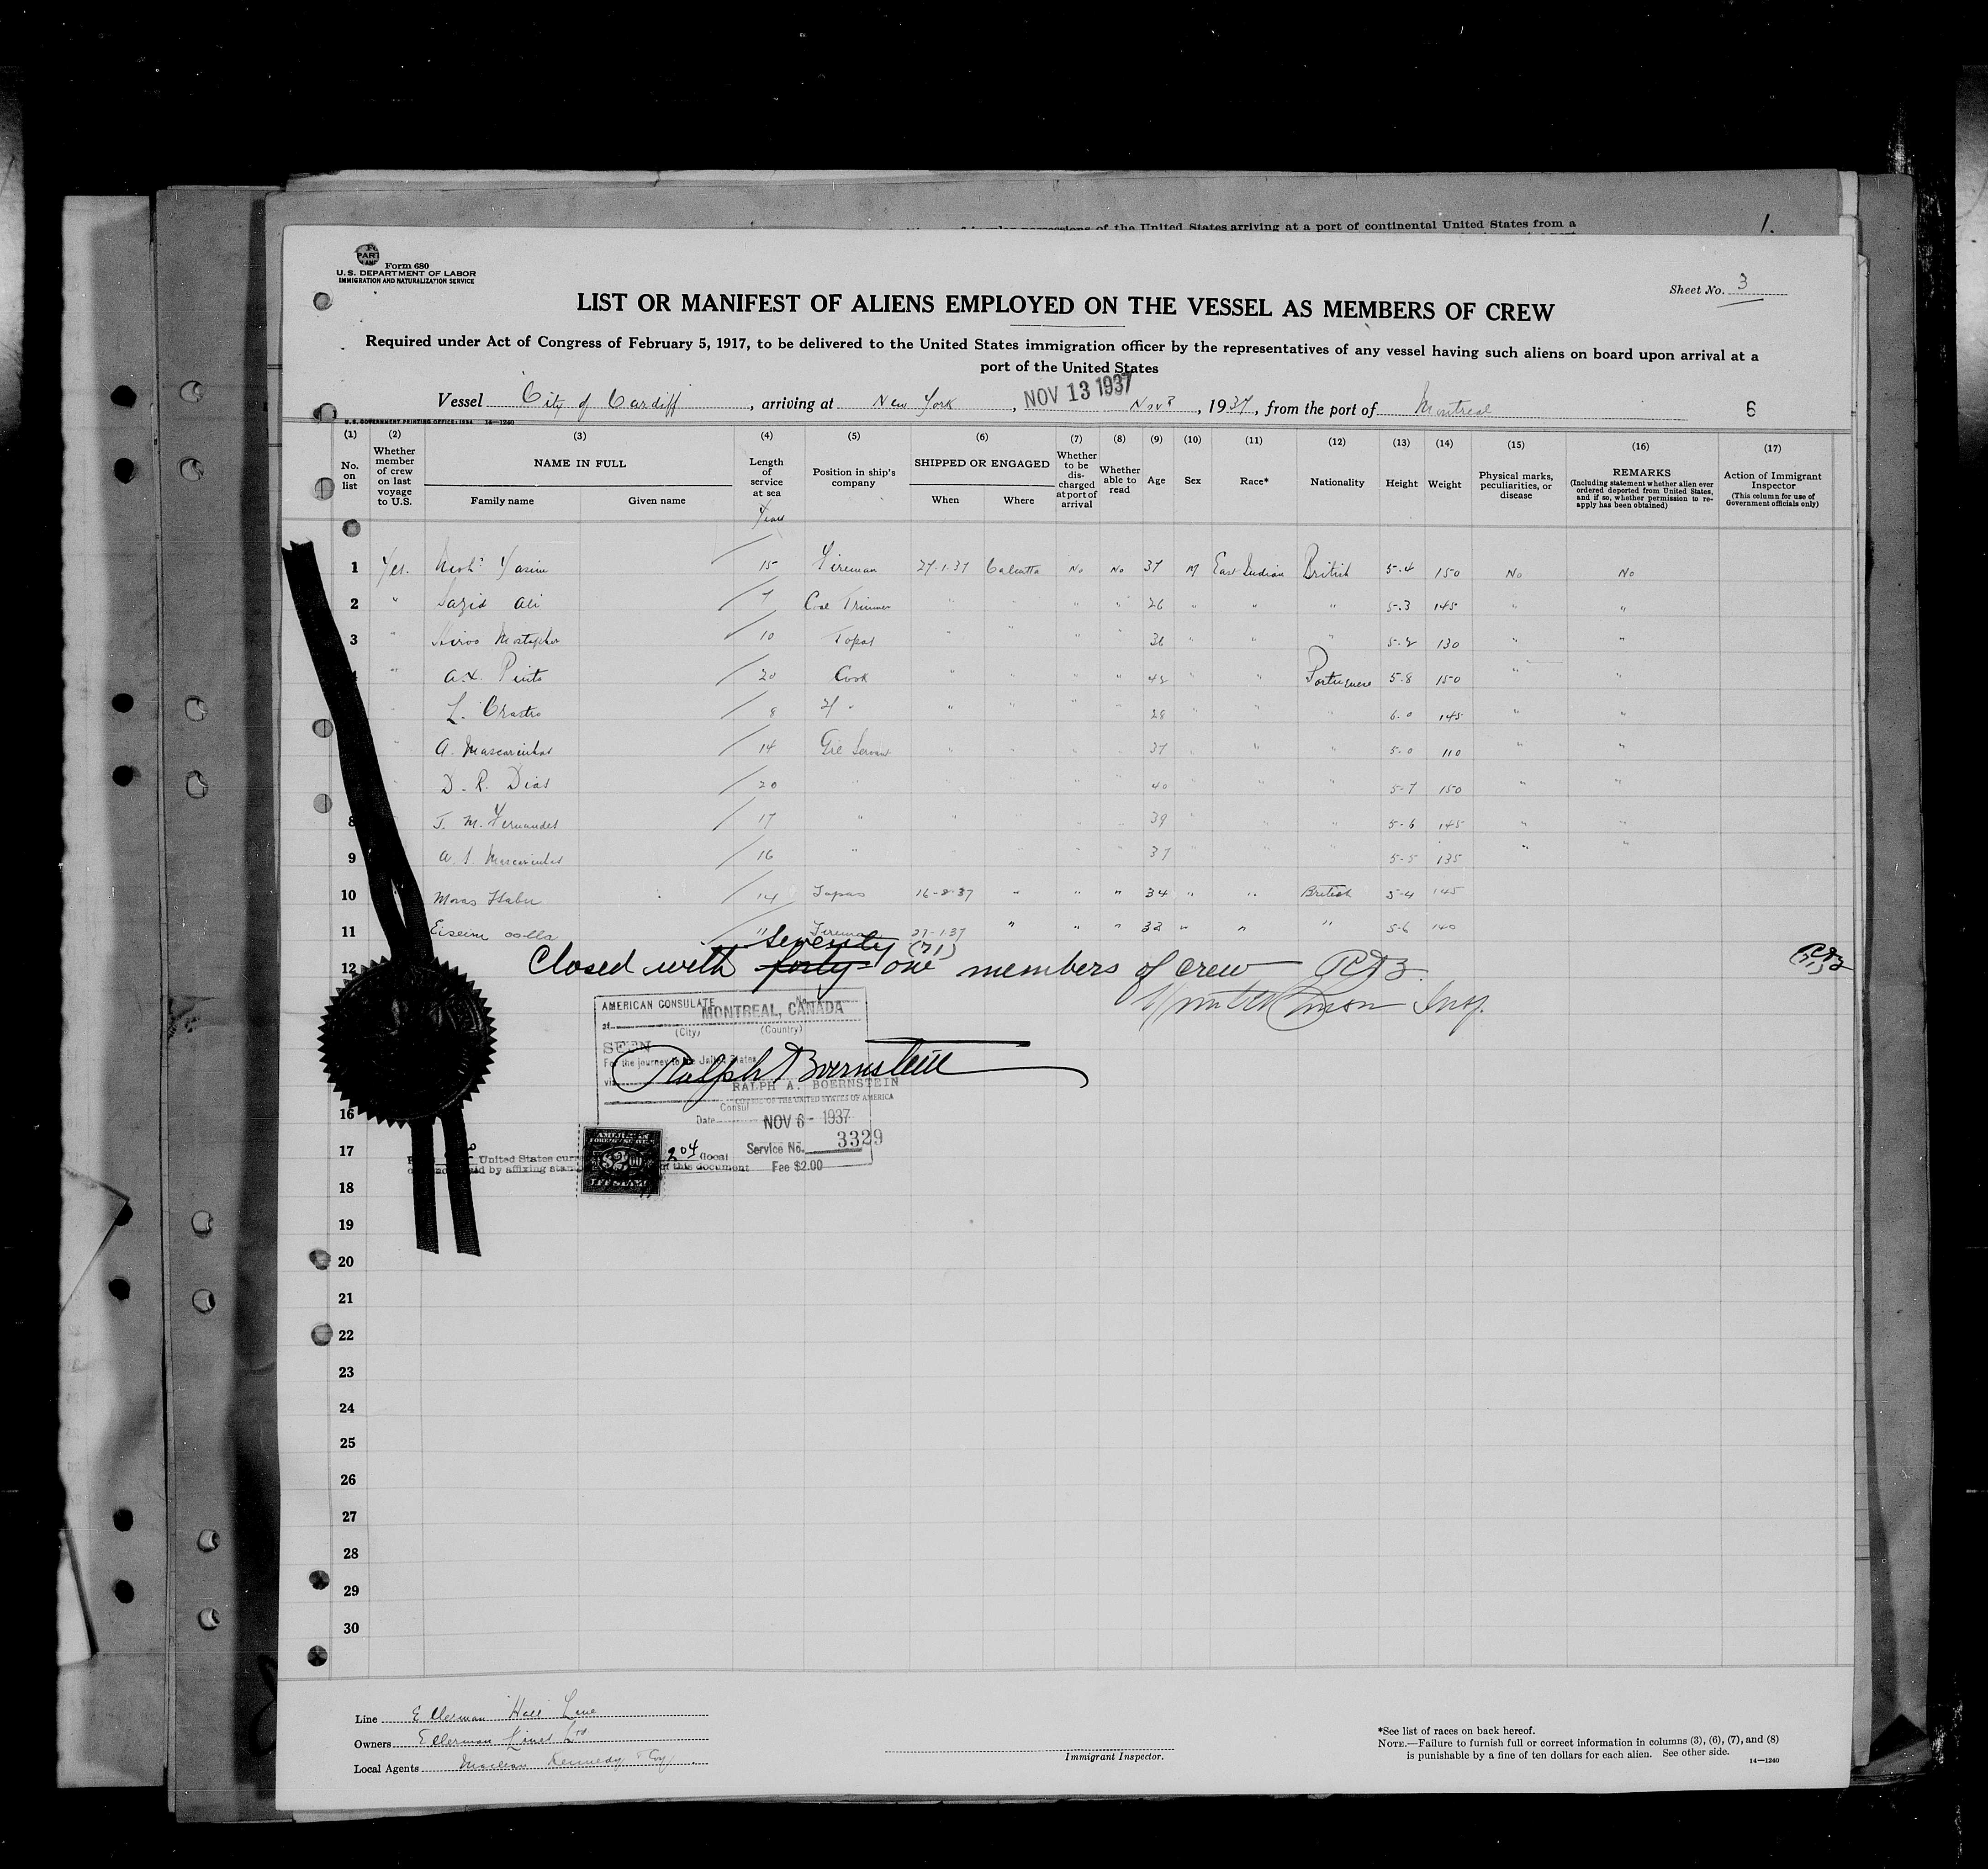 of the United States arriving at a port of continental United States from a
1.
Form 680
U.S. DEPARTMENT OF LABOR
IMMIGRATION AND NATURALIZATION SERVICE
Sheet No. 3
LIST OR MANIFEST OF ALIENS EMPLOYED ON THE VESSEL AS MEMBERS OF CREW
Required under Act of Congress of February 5, 1917, to be delivered to the United States immigration officer by the representatives of any vessel having such aliens on board upon arrival at a
port of the United States
NOV 13 1937
Vessel City of Cardiff, arriving at New York, Nov 8, 1937, from the port of Montreal 6
U.S. GOVERNMENT PRINTING OFFICE: 1934 14—1240
(1) (2) (3) (4) (5) (6) (7) (8) (9) (10) (11) (12) (13) (14) (15) (16) (17)
No. on list
Whether member of crew on last voyage to U.S.
NAME IN FULL
Family name Given name
Length of service at sea
Years
Position in ship's company
SHIPPED OR ENGAGED
When Where
Whether to be discharged at port of arrival
Whether able to read
Age
Sex
Race*
Nationality
Height
Weight
Physical marks, peculiarities, or disease
REMARKS
(Including statement whether alien ever ordered deported from United States, and if so, whether permission to re-apply has been obtained)
Action of Immigrant Inspector
(This column for use of Government officials only)
1 Yes. Moh. Yasim 15 Fireman 27.1.37 Calcutta No No 37 M East Indian British 5.4 150 No No
2 " Sazid Ali 7 Coal Trimmer " " " " 26 " " " 5.3 145 " "
3 " Mostapha 10 Topas " " " " 36 " " " 5.2 130 " "
" A.X. Pinto 20 Cook " " " " 42 " " Portuguese 5.8 150 " "
" L. Crasto 8 2/ " " " " " 28 " " " 6.0 145 " "
" A. Mascarinhas 14 Servant " " " " 37 " " " 5.0 110 " "
" D. R. Dias 20 " " " " " 40 " " " 5-7 150 " "
8 J. M. Fernandes 17 " " " " " 39 " " " 5-6 145 " "
9 A. S. Mascarinhas 16 " " " " " 37 " " " 5-5 135 " "
10 14 Topas 16-8-37 " " " 34 " " British 5-4 145
11 " Fireman 27-1.37 " " " 32 " " " 5-6 140
seventy (71)
12 Closed with forty-one members of crew
Insp.
AMERICAN CONSULATE
at MONTREAL, CANADA
(City) (Country)
SEEN
For the journey to the United States
via
Ralph A. Boernstein
RALPH A. BOERNSTEIN
CONSUL OF THE UNITED STATES OF AMERICA
Consul
Date NOV 6 - 1937
Service No. 3329
Fee $2.00
16
17
United States
204 (local
by affixing stamp of this document
AMERICAN
FOREIGN SERVICE
$2.00
FEE STAMP
18
19
20
21
22
23
24
25
26
27
28
29
30
Line Ellerman Hall Line
Owners Ellerman Lines Ltd
Local Agents Maclean Kennedy
Immigrant Inspector.
*See list of races on back hereof.
NOTE.—Failure to furnish full or correct information in columns (3), (6), (7), and (8)
is punishable by a fine of ten dollars for each alien. See other side.
14—1240